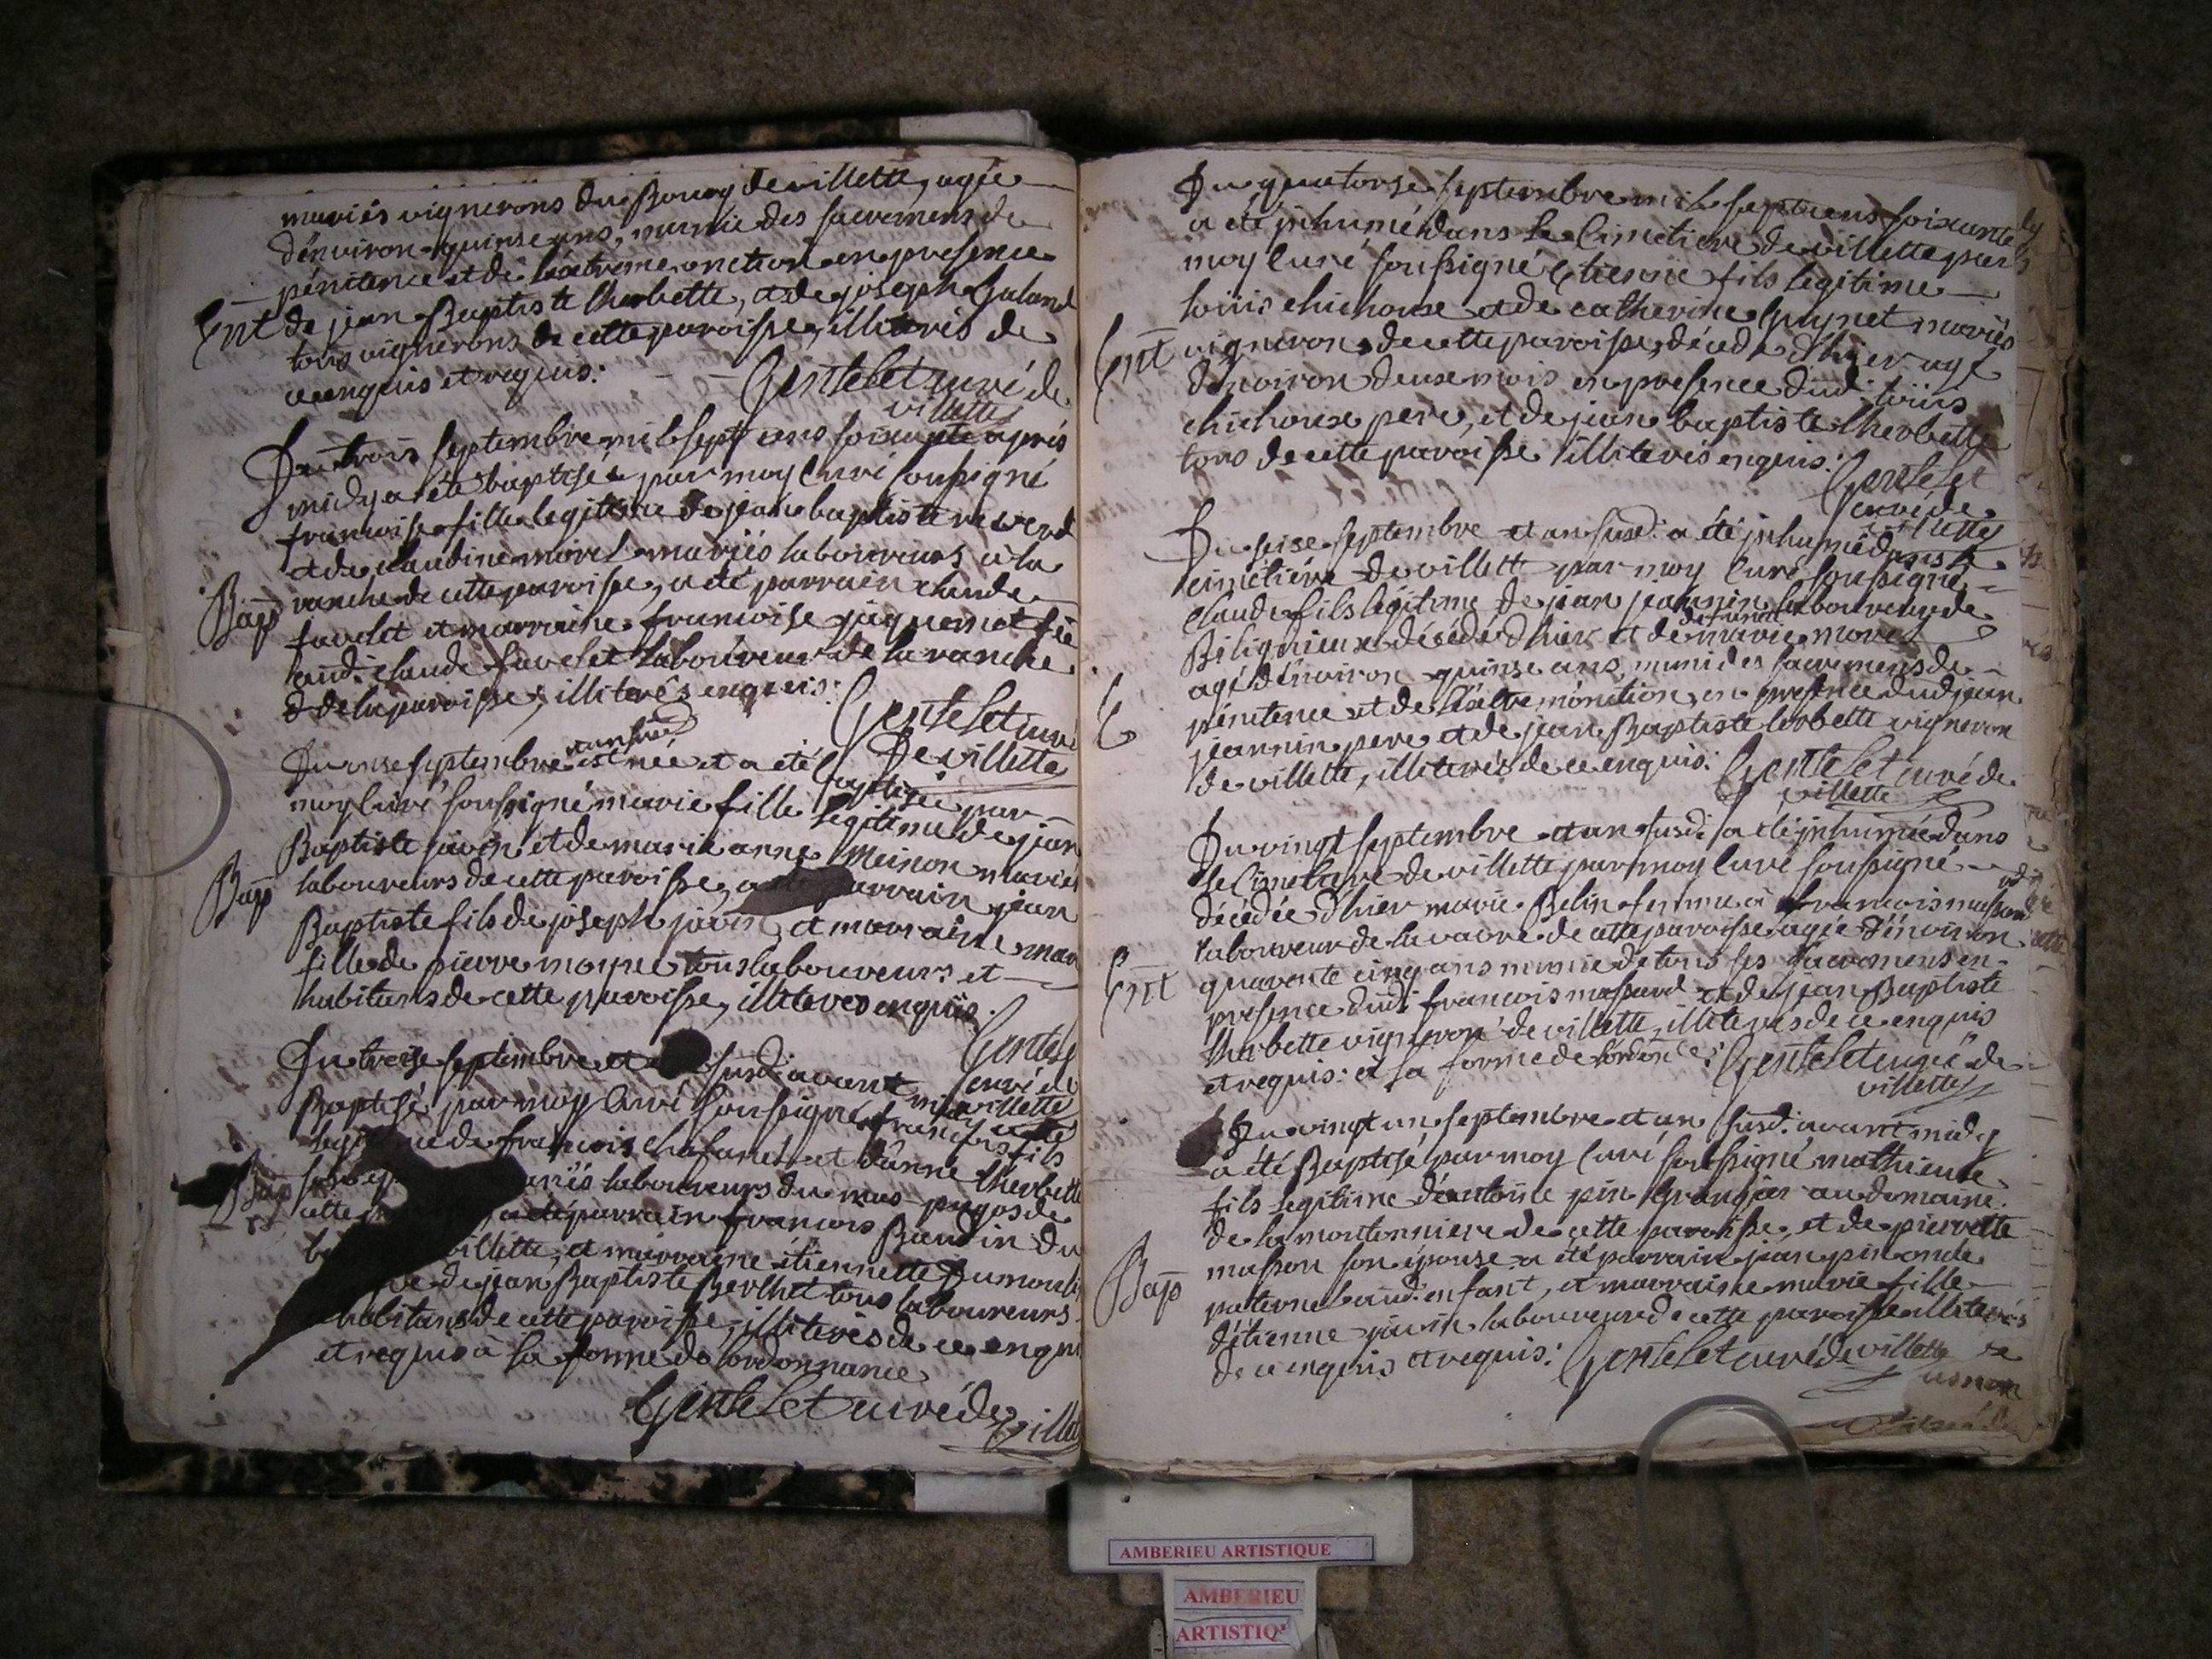 mariés vignerons du Bourg de villette, agée
dénviron quinse ans, munie des sacremens de
pénitence et de l'extreme onction en presence
Ent de jean Baptiste lherbette, et de joseph Galand
tous vignerons de cette paroisse, illiterés de
ce enquis et requis: Gentelet curé de
villette
Du trois septembre mil sept cens soixante aprés
midy a été baptisée par moy Curé soussigné
francoise fille legitime de jean baptiste
et de claudine morel mariés laboureurs a la
Bap ranche de cette paroisse, a été parrain claude
favelet et marraine francoise jaquemet
dud. claude favelet laboureur de la ranche
de la paroisse, illiterés enquis:
Gentelet curé
De villette
Du onse septembre est née et a été
Baptisée par
moy Curé soussigné marie fille legitime de jean
Baptiste javin et de marie anne Meinon mariés
Bap laboureurs de cette paroisse, a parrain jean
Baptiste fils de joseph javin, et marraine
fille de pierre moyne tous laboureurs et
habitans de cette paroisse, illiteres enquis.
Gentelet
curé de
villette
Du treise septembre et susd. avant midy
Baptisé par moy Curé soussigné francois fils
de francois et d'anne lherbette
Bap mariés laboureurs du mas pugos de
cette a été parrain francois Baudin du
villette, et marraine étiennette Dumoulin
de jean Baptiste Berlhet tous laboureurs
habitans de cette paroisse, illiterés de ce enquis
et requis à la forme de lordonnance
Gentelet curé de
villette
Du quatorse septembre mil sept cens soixante
a été jnhumé dans le Cimetiere de villette par
moy Curé soussigné Etienne fils legitime
loüis chichoux et de catherine Guynet mariés
Ent vignerons de cette paroisse, décedé d'hier agé
dénviron deuse mois en presence dud. loüis
chichoux pere, et de jean baptiste lherbette
tous de cette paroisse illiterés enquis:
Gentelet
curé de
villette
Du seise septembre et an susd. a été jnhumé dans le
cimétiére de villette par moy Curé soussigné
claude fils legitime de jean jeannin laboureur de
defunte
Bilignieux décédé d'hier et de marie morel
agé dénviron quinse ans, muni des sacremens de
E pénitence et de l'extre mónction, en presence dud jean
jeannin pere et de jean Baptiste lerbette vigneron
de villette, illiterés de ce enquis: Gentelet curé de
villette
Du vingt septembre et an susd. a été jnhumée dans
le Cimetiere de villette par moy Curé soussigné
décédée d'hier marie Belin femme à francois massard
laboureur de la vavre de cette paroisse agée dénviron
Ent quarente cinq ans munie de tous ses sacremens en
presence dud. francois massard et de jean Baptiste
lherbette vigneron de villette, illiterés de ce enquis
et requis: a la forme de lordon.ce: Gentelet curé de
villette
Du vingt un septembre et an susd. avant midy
a été Baptisé par moy Curé soussigné mathieu
fils legitime d'antoine pin Grangier au domaine
de la montonniere de cette paroisse, et de pierrette
masson son épouse a été parrain jean pin oncle
Bap paternel aud. enfant, et marraine marie fille
d'étienne javin laboureur de cette paroisse illiterés
de ce enquis et requis: Gentelet curé de villette
AMBERIEU ARTISTIQUE
AMBERIEU
ARTISTIQ